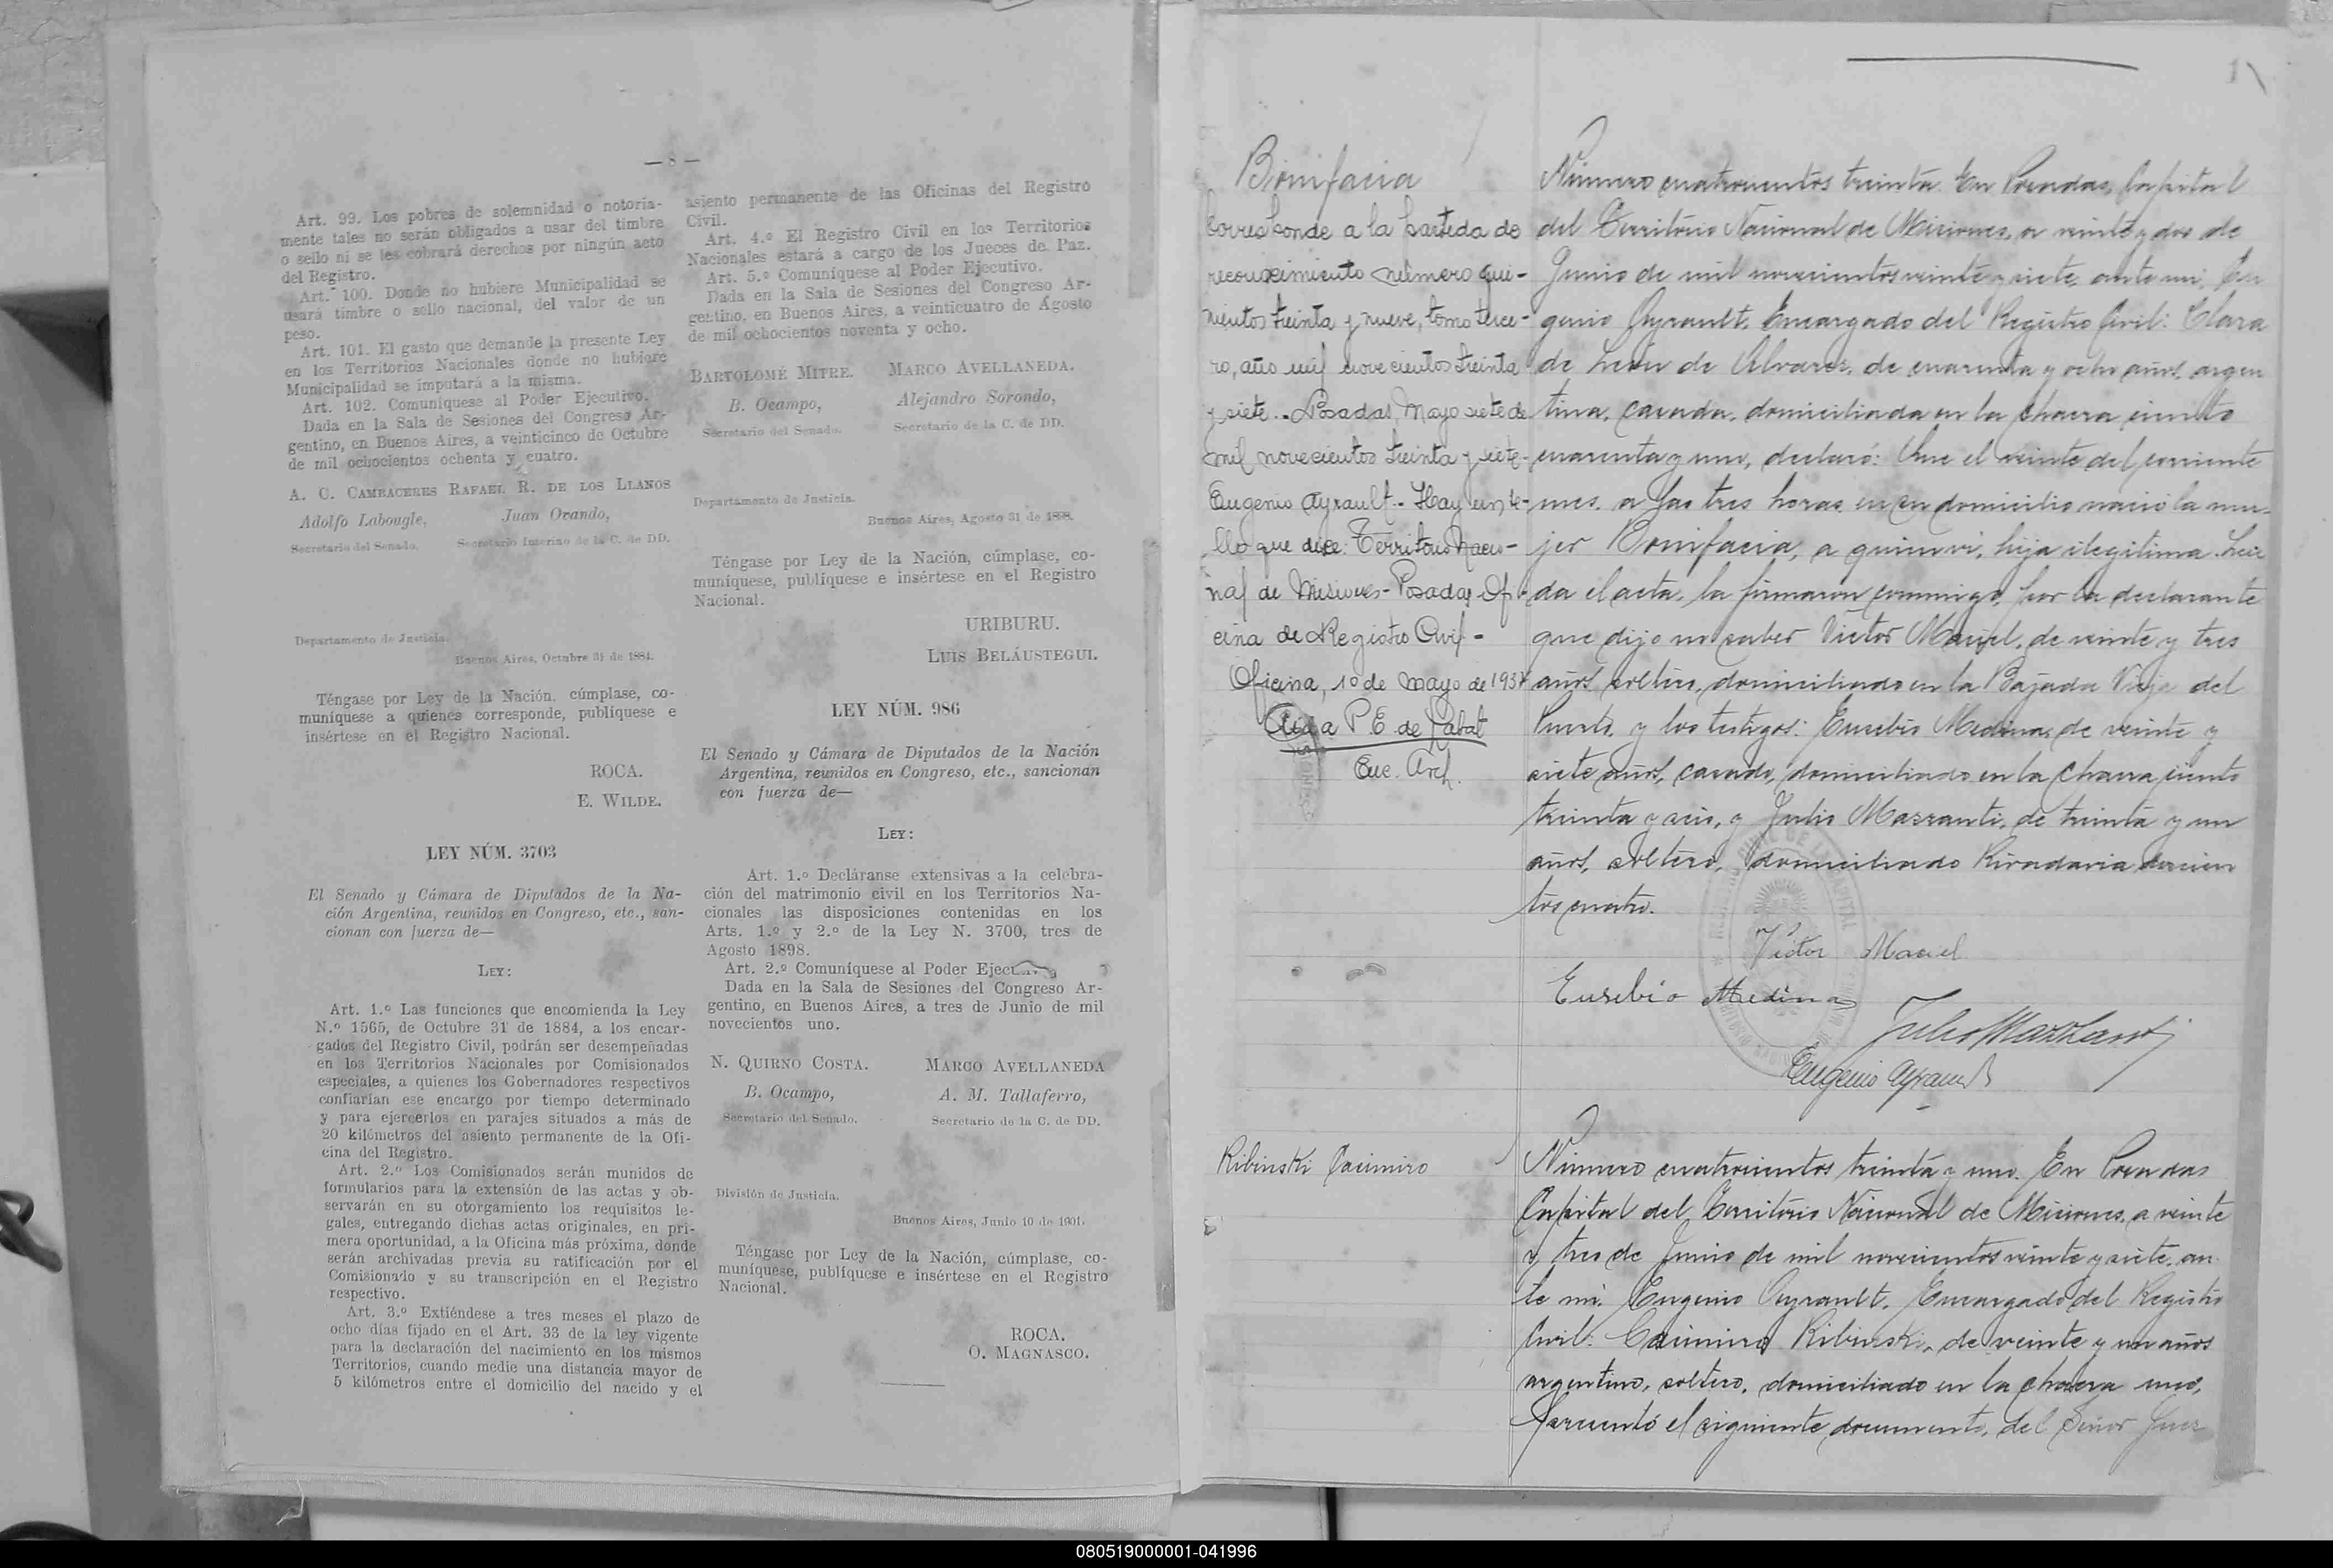 — 8 —
Art. 99. Los pobres de solemnidad o notoria-
mente tales no serán obligados a usar del timbre
o sello ni se les cobrará derechos por ningún acto
del Registro.
Art. 100. Donde no hubiere Municipalidad se
usará timbre o sello nacional, del valor de un
peso.
Art. 101. El gasto que demande la presente Ley
en los Territorios Nacionales donde no hubiere
Municipalidad se imputará a la misma.
Art. 102. Comuníquese al Poder Ejecutivo.
Dada en la Sala de Sesiones del Congreso Ar-
gentino, en Buenos Aires, a veinticinco de Octubre
de mil ochocientos ochenta y cuatro.
A. C. CAMBACERES RAFAEL R. DE LOS LLANOS
Adolfo Labougle, Juan Ovando,
Secretario del Senado. Secretario Interino de la C. de DD.
Departamento de Justicia.
Buenos Aires, Octubre 31 de 1884.
Téngase por Ley de la Nación, cúmplase, co-
muníquese a quienes corresponde, publíquese e
insértese en el Registro Nacional.
ROCA.
E. WILDE.
LEY NÚM. 3703
El Senado y Cámara de Diputados de la Na-
ción Argentina, reunidos en Congreso, etc., san-
cionan con fuerza de—
LEY:
Art. 1.º Las funciones que encomienda la Ley
N.º 1565, de Octubre 31 de 1884, a los encar-
gados del Registro Civil, podrán ser desempeñadas
en los Territorios Nacionales por Comisionados
especiales, a quienes los Gobernadores respectivos
confiarían ese encargo por tiempo determinado
y para ejercerlos en parajes situados a más de
20 kilómetros del asiento permanente de la Ofi-
cina del Registro.
Art. 2.º Los Comisionados serán munidos de
formularios para la extensión de las actas y ob-
servarán en su otorgamiento los requisitos le-
gales, entregando dichas actas originales, en pri-
mera oportunidad, a la Oficina más próxima, donde
serán archivadas previa su ratificación por el
Comisionado y su transcripción en el Registro
respectivo.
Art. 3.º Extiéndese a tres meses el plazo de
ocho días fijado en el Art. 33 de la ley vigente
para la declaración del nacimiento en los mismos
Territorios, cuando medie una distancia mayor de
5 kilómetros entre el domicilio del nacido y el
asiento permanente de las Oficinas del Registro
Civil.
Art. 4.º El Registro Civil en los Territorios
Nacionales estará a cargo de los Jueces de Paz.
Art. 5.º Comuníquese al Poder Ejecutivo.
Dada en la Sala de Sesiones del Congreso Ar-
gentino, en Buenos Aires, a veinticuatro de Agosto
de mil ochocientos noventa y ocho.
BARTOLOMÉ MITRE. MARCO AVELLANEDA.
B. Ocampo, Alejandro Sorondo,
Secretario del Senado. Secretario de la C. de DD.
Departamento de Justicia.
Buenos Aires, Agosto 31 de 1898.
Téngase por Ley de la Nación, cúmplase, co-
muníquese, publíquese e insértese en el Registro
Nacional.
URIBURU.
LUIS BELÁUSTEGUI.
LEY NÚM. 986
El Senado y Cámara de Diputados de la Nación
Argentina, reunidos en Congreso, etc., sancionan
con fuerza de—
LEY:
Art. 1.º Decláranse extensivas a la celebra-
ción del matrimonio civil en los Territorios Na-
cionales las disposiciones contenidas en los
Arts. 1.º y 2.º de la Ley N. 3700, tres de
Agosto 1898.
Art. 2.º Comuníquese al Poder
Dada en la Sala de Sesiones del Congreso Ar-
gentino, en Buenos Aires, a tres de Junio de mil
novecientos uno.
N. QUIRNO COSTA. MARCO AVELLANEDA
B. Ocampo, A. M. Tallaferro,
Secretario del Senado. Secretario de la C. de DD.
División de Justicia.
Buenos Aires, Junio 10 de 1901.
Téngase por Ley de la Nación, cúmplase, co-
muníquese, publíquese e insértese en el Registro
Nacional.
ROCA.
O. MAGNASCO.
1
Bonifacia
Corresponde a la partida de
reconocimiento número qui-
nientos treinta y nueve, tomo terce-
ro, año mil novecientos treinta
y siete.- Posadas, Mayo siete de
mil novecientos treinta y siete-
Eugenio Ayrault.- Hay un se-
llo que dice: Territorio Nacio-
nal de Misiones- Posadas- Ofi-
cina de Registro Civil-
Oficina, 10 de Mayo de 1937
P E de Labat
Enc. Arch.
Número cuatrocientos treinta. En Posadas, Capital
del Territorio Nacional de Misiones, a veinte y dos de
Junio de mil novecientos veinte y siete, ante mi, Eu
genio Ayrault, Encargado del Registro Civil: Clara
de León de Alvarez, de cuarenta y ocho años, argen
tina, casada, domiciliada en la chacra ciento
cuarenta y uno, declaró: Que el veinte del corriente
mes, a las tres horas, en su domicilio nació la mu-
jer Bonifacia, a quien vi, hija ilegítima. Leí
da el acta, la firmaron conmigo, por la declarante
que dijo no saber Victor Maciel, de veinte y tres
años, soltero, domiciliado en la Bajada Vieja del
Puerto, y los testigos: Eusebio Medina, de veinte y
siete años, casado, domiciliado en la chacra ciento
treinta y seis, y Julio Mazzanti, de treinta y un
años, soltero, domiciliado Rivadavia doscien
tos cuatro.
Victor Maciel
Eusebio Medina
Julio Mazzanti
Eugenio Ayrault
Ribinski Casimiro
Número cuatrocientos treinta y uno. En Posadas
Capital del Territorio Nacional de Misiones, a veinte
y tres de Junio de mil novecientos veinte y siete, an
te mí. Eugenio Ayrault, Encargado del Registro
Civil: Casimiro Ribinski, de veinte y un años
argentino, soltero, domiciliado en la chacra uno,
Presentó el siguiente documento, del Señor Juez
080519000001-041996